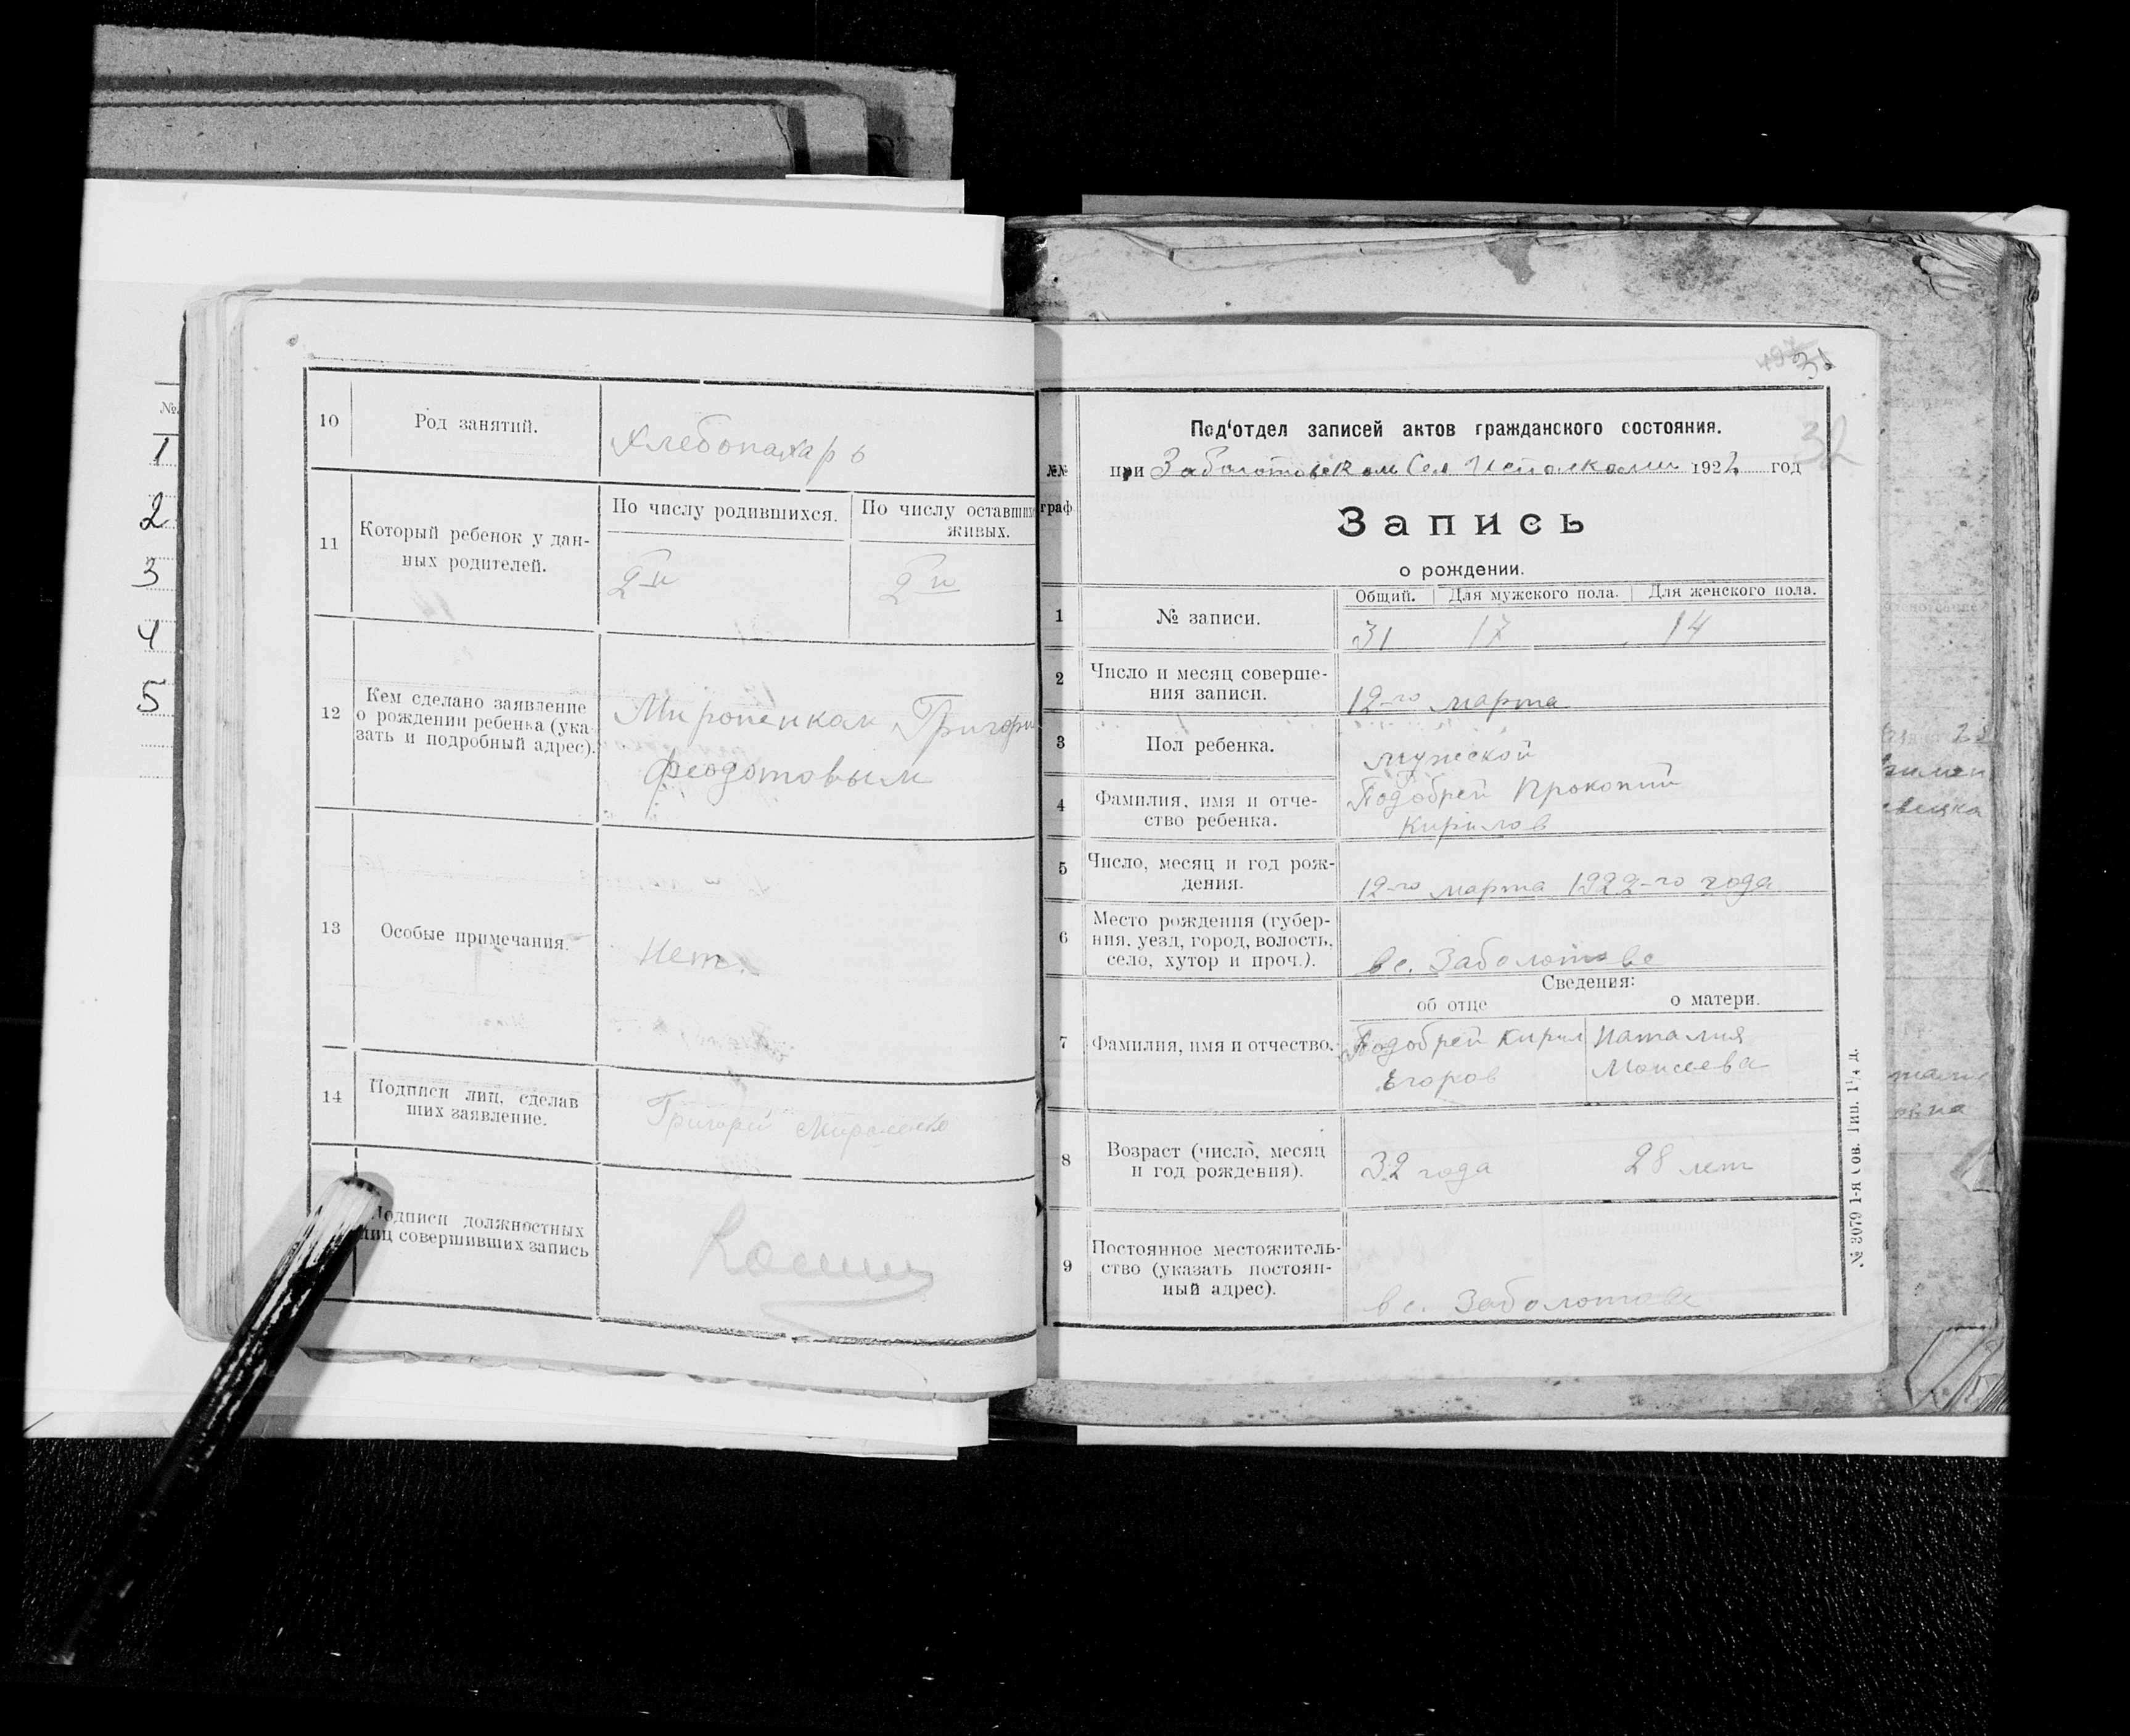 №
1
2
3
4
5
10
Род занятий.
Хлебопахарь
11
Который ребенок у дан-
ных родителей.
По числу родившихся.
2й
По числу оставших
живых.
2й
12
Кем сделано заявление
о рождении ребенка (ука-
зать и подробный адрес).
Миропенкам Григори
Феодотовым
13
Особые примечания.
Нет.
14
Подписи лиц, сделав
ших заявление.
Григорий
Подписи должностных
лиц совершивших запись
31
32
№№
граф
Под'отдел записей актов гражданского состояния.
при Заболотовском Сел Исполкоми 1922 год
Запись
о рождении.
1
№ записи.
Общий. Для мужского пола. Для женского пола.
31 17 14
2
Число и месяц соверше-
ния записи.
12-го марта
3
Пол ребенка.
мужской
4
Фамилия, имя и отче-
ство ребенка.
Подобрей Прокопий
Кирилов
5
Число, месяц и год рож-
дения.
12-го марта 1922-го года
6
Место рождения (губер-
ния, уезд, город, волость,
село, хутор и проч.).
в с. Заболотове
Сведения:
об отце о матери.
7
Фамилия, имя и отчество.
Подобрей Кирил
Егоров
Наталия
Моисеева
8
Возраст (число, месяц
и год рождения).
32 года 28 лет
9
Постоянное местожитель-
ство (указать постоян-
ный адрес).
в с. Заболотове
№ 3079 1-я Сов. Тип. 1¹/₄ д.